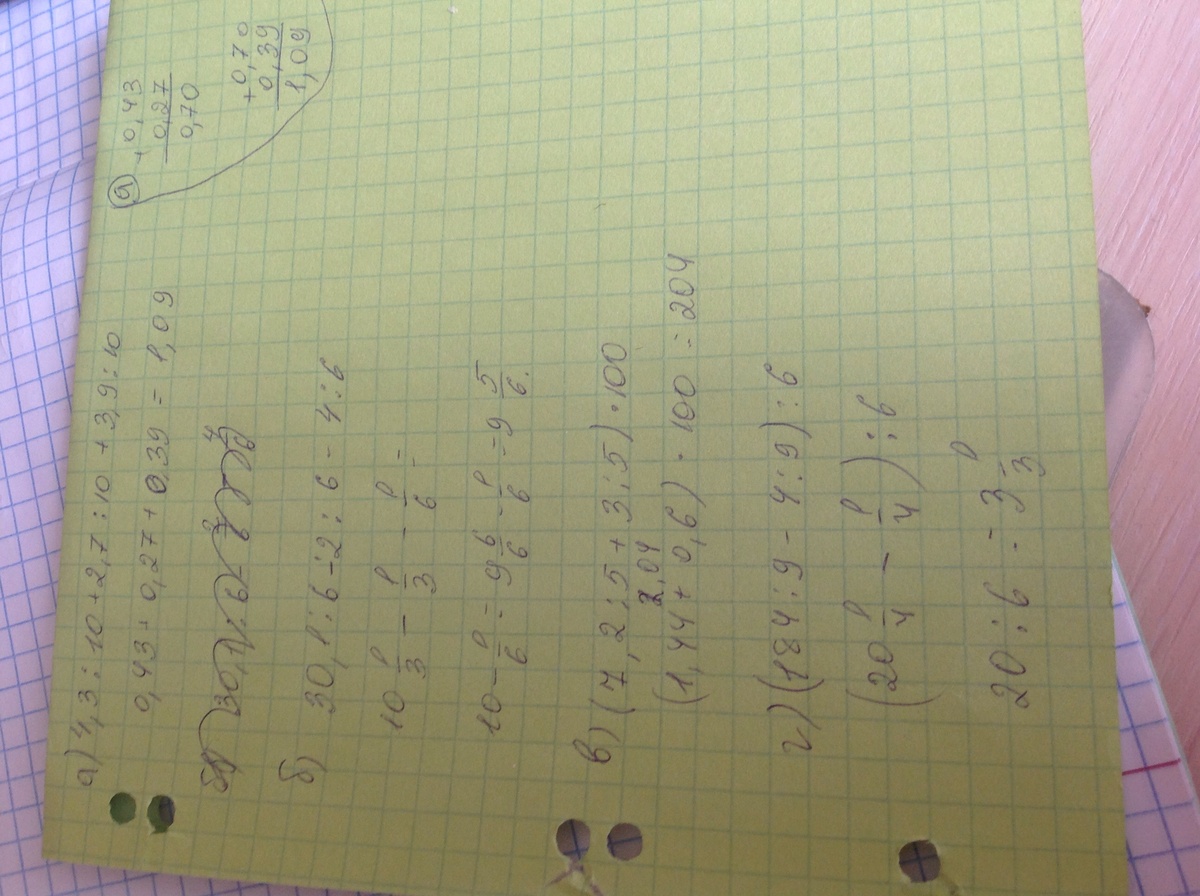 а) 4,3 : 10 + 2,7 : 10 + 3,9 : 10
0,43 + 0,27 + 0,39 = 1,09
а) + 0,43
0,27
0,70
+ 0,70
0,39
1,09
б) 30,1 : 6 - 2 : 6 - 4 : 6
10 1/3 - 1/3 - 1/6 =
10 - 1/6 = 9 6/6 - 1/6 = 9 5/6.
в) (7,2 : 5 + 3 : 5) · 100
2,04
(1,44 + 0,6) · 100 = 204
г) (184 : 9 - 4 : 9) : 6
(20 1/4 - 1/4) : 6
20 : 6 = 3 1/3